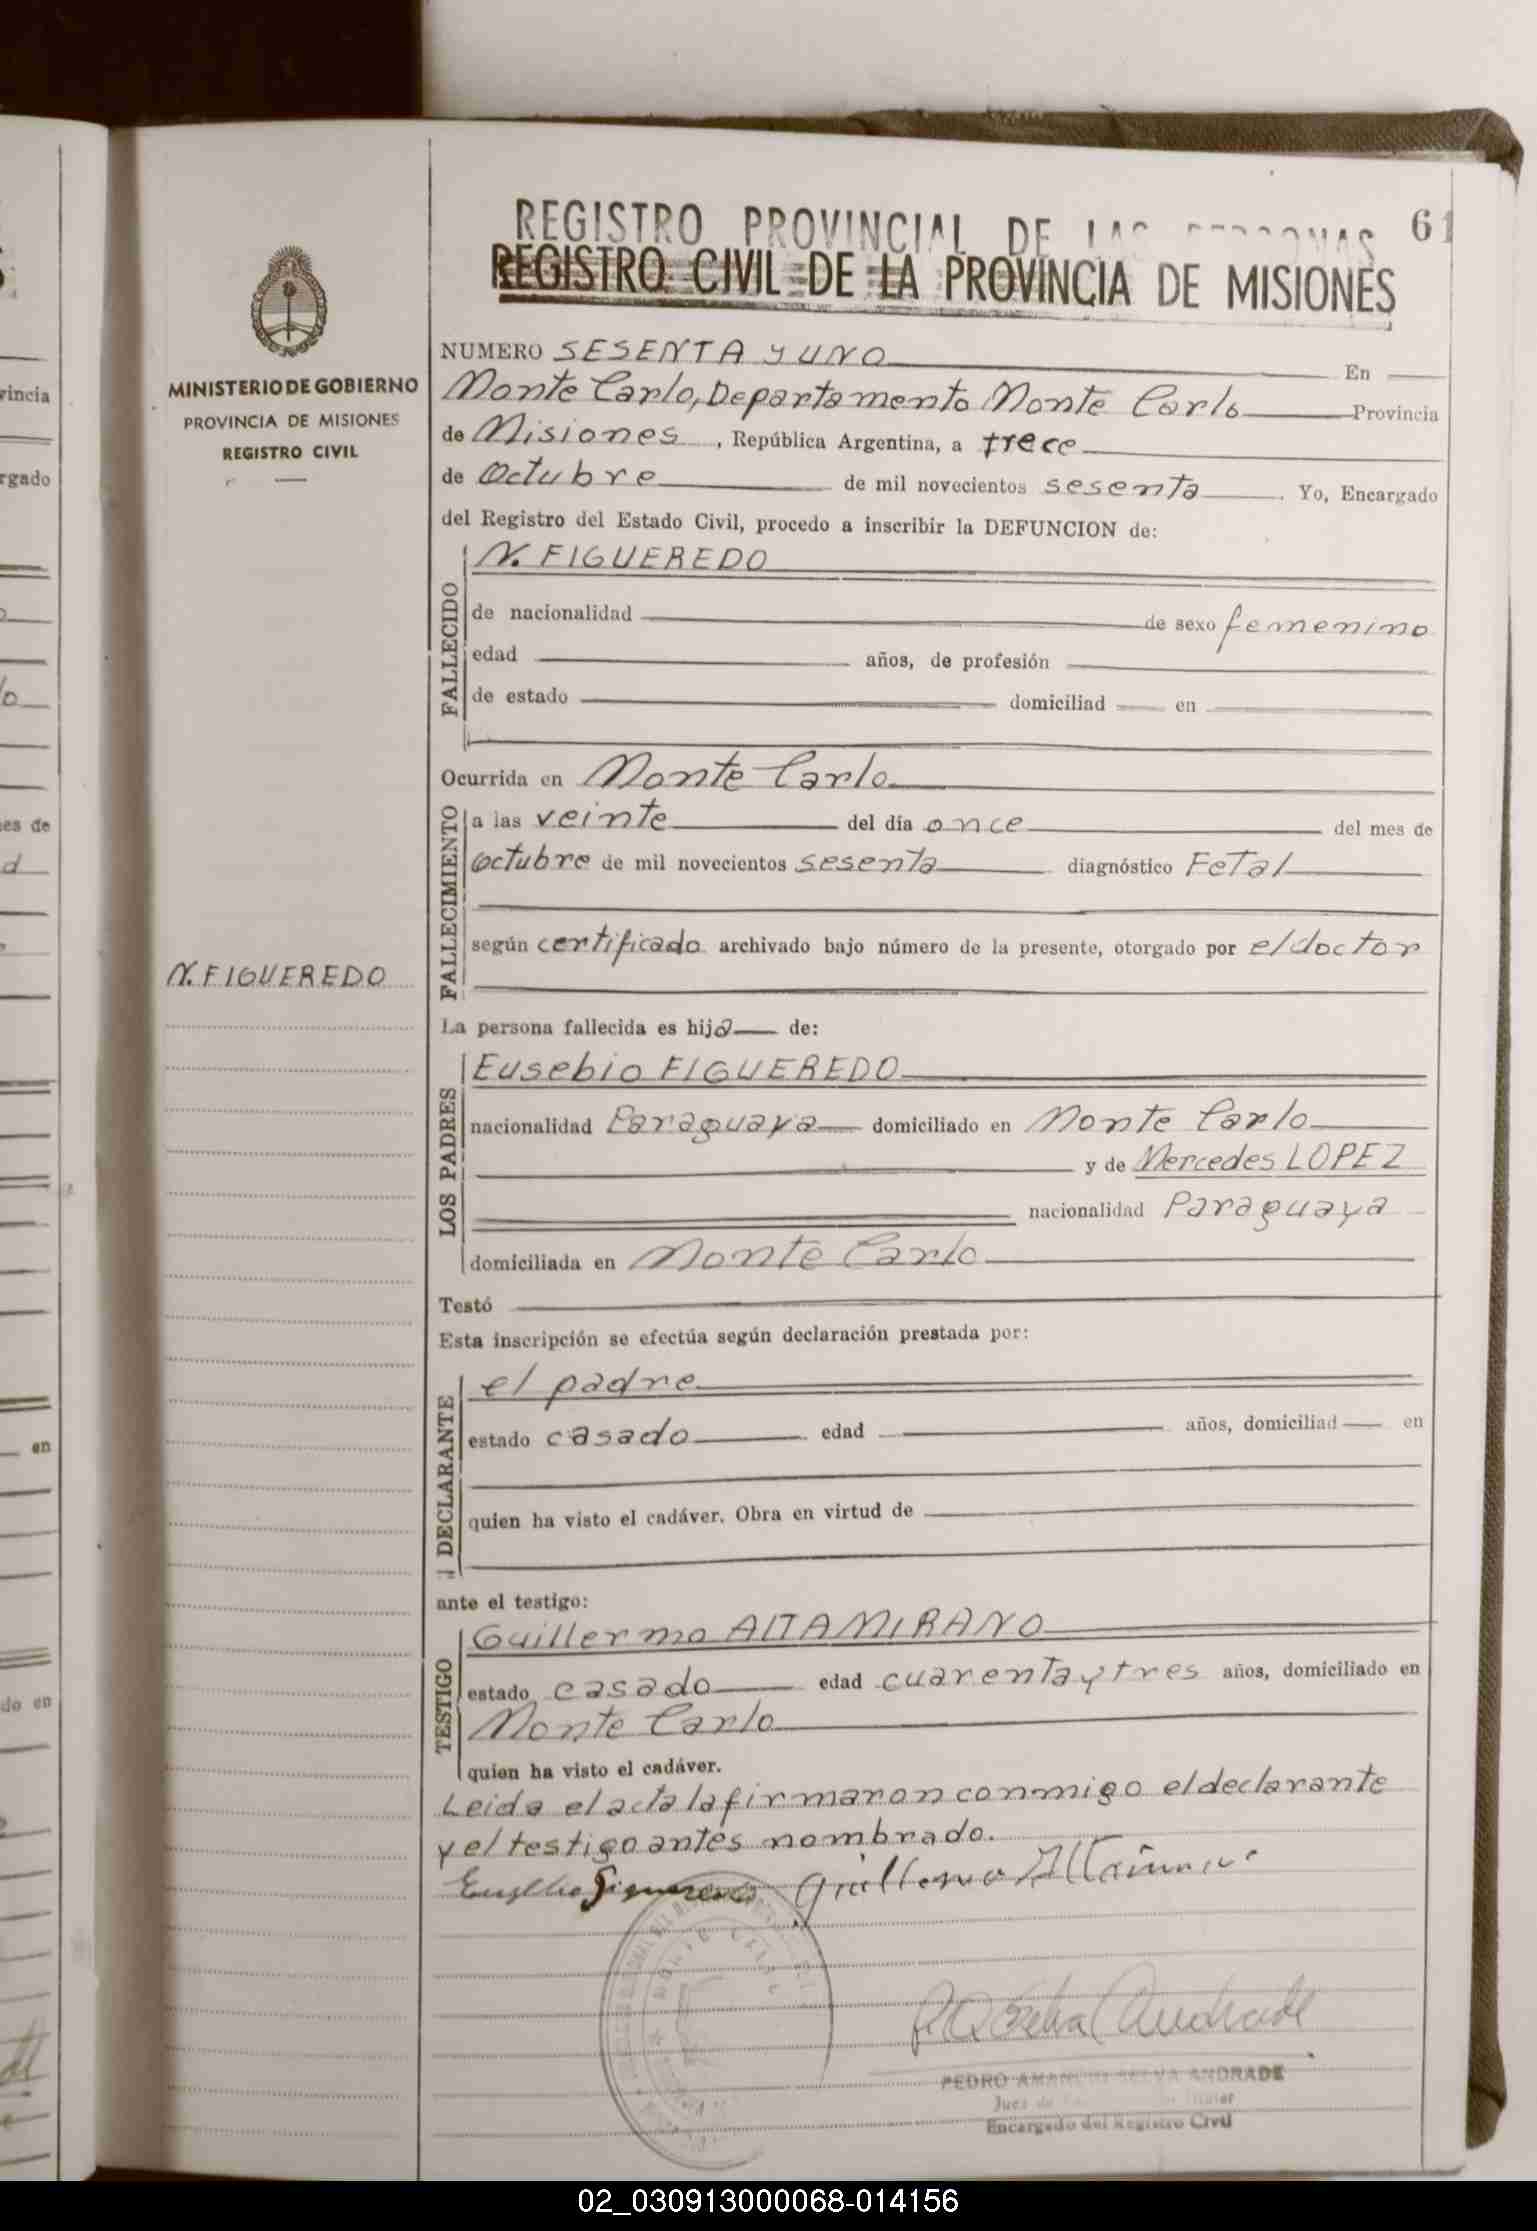 REGISTRO PROVINCIAL DE LAS PERSONAS
61
REGISTRO CIVIL DE LA PROVINCIA DE MISIONES
MINISTERIO DE GOBIERNO
PROVINCIA DE MISIONES
REGISTRO CIVIL
NUMERO SESENTA y UNO En
Monte Carlo, Departamento Monte Carlo Provincia
de Misiones, República Argentina, a trece
de Octubre de mil novecientos sesenta. Yo, Encargado
del Registro del Estado Civil, procedo a inscribir la DEFUNCION de:
FALLECIDO
N. FIGUEREDO
de nacionalidad de sexo femenino
edad años, de profesión
de estado domiciliad en
Ocurrida en Monte Carlo
FALLECIMIENTO
a las veinte del día once del mes de
octubre de mil novecientos sesenta diagnóstico Fetal
según certificado archivado bajo número de la presente, otorgado por el doctor
N. FIGUEREDO
La persona fallecida es hija de:
LOS PADRES
Eusebio FIGUEREDO
nacionalidad Paraguaya domiciliado en Monte Carlo
y de Mercedes LOPEZ
nacionalidad Paraguaya
domiciliada en Monte Carlo
Testó
Esta inscripción se efectúa según declaración prestada por:
DECLARANTE
el padre
estado casado edad años, domiciliad en
quien ha visto el cadáver. Obra en virtud de
ante el testigo:
TESTIGO
Guillermo ALTAMIRANO
estado casado edad cuarenta y tres años, domiciliado en
Monte Carlo
quien ha visto el cadáver.
Leida el acta la firmaron conmigo el declarante
y el testigo antes nombrado.
PEDRO AMANCIO SELVA ANDRADE
Juez de
Encargado del Registro Civil
rincia
rgado
es de
en
do en
02_030913000068-014156